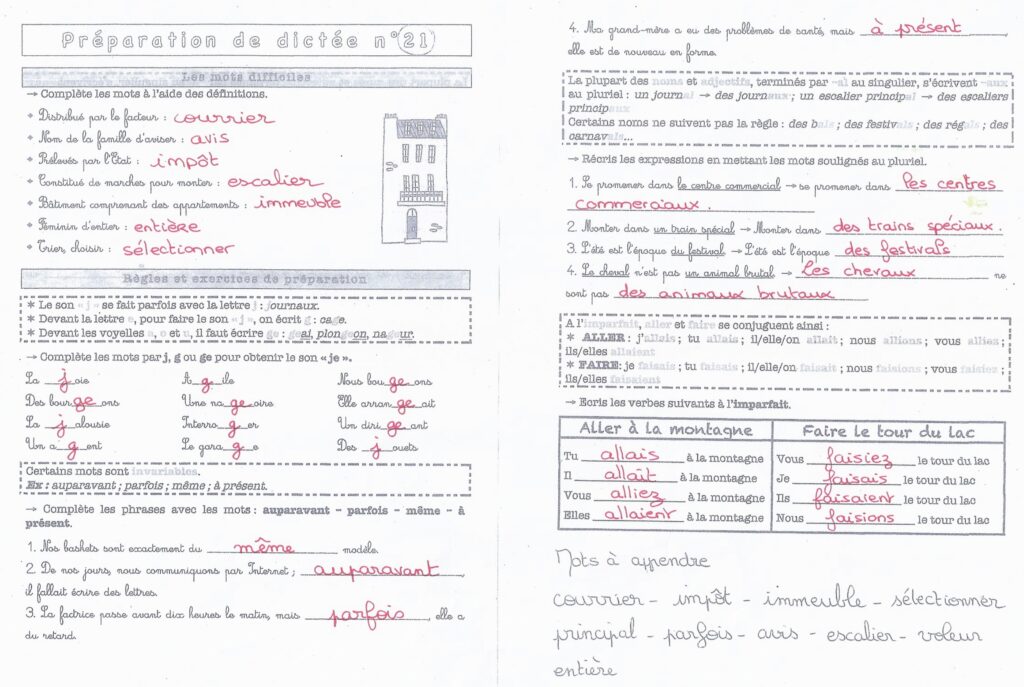 Préparation de dictée n° 21
Les mots difficiles
→ Complète les mots à l'aide des définitions.
Distribué par le facteur : courrier
Nom de la famille d'aviser : avis
Prélevés par l'État : impôt
Constitué de marches pour monter : escalier
Bâtiment comprenant des appartements : immeuble
Féminin d'entier : entière
Trier, choisir : sélectionner
Règles et exercices de préparation
* Le son « j » se fait parfois avec la lettre j : journaux.
* Devant la lettre e, pour faire le son « j », on écrit g : cage.
* Devant les voyelles a, o et u, il faut écrire ge : geai, plongeon, nageur.
→ Complète les mots par j, g ou ge pour obtenir le son « je ».
La joie Agile Nous bougeons
Des bourgeons Une nageoire Elle arrangeait
La jalousie Interroger Un dirigeant
Un agent Le garage Des jouets
Certains mots sont invariables.
Ex : auparavant ; parfois ; même ; à présent.
→ Complète les phrases avec les mots : auparavant – parfois – même – à
présent.
1. Nos baskets sont exactement du même modèle.
2. De nos jours, nous communiquons par Internet ; auparavant,
il fallait écrire des lettres.
3. La factrice passe avant dix heures le matin, mais parfois, elle a
du retard.
4. Ma grand-mère a eu des problèmes de santé, mais à présent,
elle est de nouveau en forme.
La plupart des noms et adjectifs, terminés par -al au singulier, s'écrivent -aux
au pluriel : un journal → des journaux ; un escalier principal → des escaliers
principaux
Certains noms ne suivent pas la règle : des bals ; des festivals ; des régals ; des
carnavals...
→ Récris les expressions en mettant les mots soulignés au pluriel.
1. Se promener dans le centre commercial → se promener dans les centres
commerciaux.
2. Monter dans un train spécial → Monter dans des trains spéciaux.
3. L'été est l'époque du festival → L'été est l'époque des festivals
4. Le cheval n'est pas un animal brutal → Les chevaux ne
sont pas des animaux brutaux
A l'imparfait, aller et faire se conjuguent ainsi :
* ALLER : j'allais ; tu allais ; il/elle/on allait ; nous allions ; vous alliez ;
ils/elles allaient
* FAIRE: je faisais ; tu faisais ; il/elle/on faisait ; nous faisions ; vous faisiez ;
ils/elles faisaient
→ Ecris les verbes suivants à l'imparfait.
Aller à la montagne Faire le tour du lac
Tu allais à la montagne Vous faisiez le tour du lac
Il allait à la montagne Je faisais le tour du lac
Vous alliez à la montagne Ils faisaient le tour du lac
Elles allaient à la montagne Nous faisions le tour du lac
Mots à apprendre
courrier - impôt - immeuble - sélectionner
principal - parfois - avis - escalier - voleur
entière